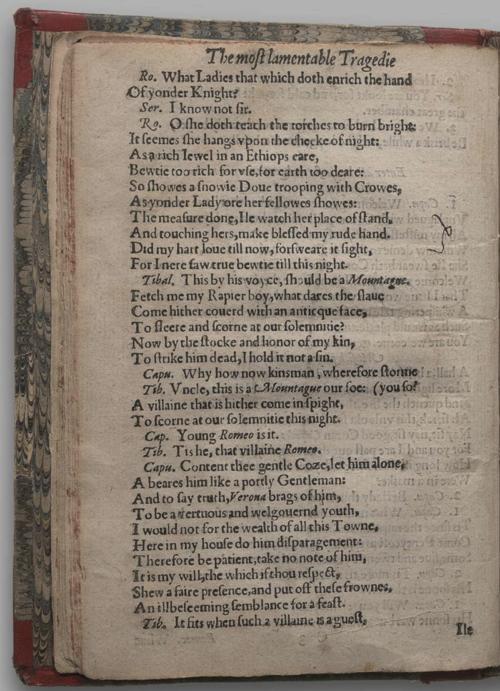 The most lamentable Tragedie
Ro. What Ladies that which doth enrich the hand
Of yonder Knight?
Ser. I know not sir.
Ro. O she doth teach the torches to burn bright:
It seemes she hangs vpon the cheeke of night:
As a rich Iewel in an Ethiops eare,
Bewtie too rich for vse, for earth too deare:
So showes a snowie Doue trooping with Crowes,
As yonder Lady ore her fellowes showes:
The measure done, Ile watch her place of stand,
And touching hers, make blessed my rude hand.
Did my hart loue till now, forsweare it sight,
For I nere saw true bewtie till this night.
Tibal. This by his voyce, should be a Mountague.
Fetch me my Rapier boy, what dares the slaue
Come hither couerd with an anticque face,
To fleere and scorne at our solemnitie?
Now by the stocke and honor of my kin,
To strike him dead, I hold it not a sin.
Capu. Why how now kinsman, wherefore storme
Tib. Vncle, this is a Mountague our foe: (you so?
A villaine that is hither come in spight,
To scorne at our solemnitie this night.
Cap. Young Romeo is it.
Tib. Tis he, that villaine Romeo.
Capu. Content thee gentle Coze, let him alone,
A beares him like a portly Gentleman:
And to say truth, Verona brags of him,
To be a vertuous and welgouernd youth,
I would not for the wealth of all this Towne,
Here in my house do him disparagement:
Therefore be patient, take no note of him,
It is my will, the which if thou respect,
Shew a faire presence, and put off these frownes,
An illbeseeming semblance for a feast.
Tib. It fits when such a villaine is a guest,
Ile